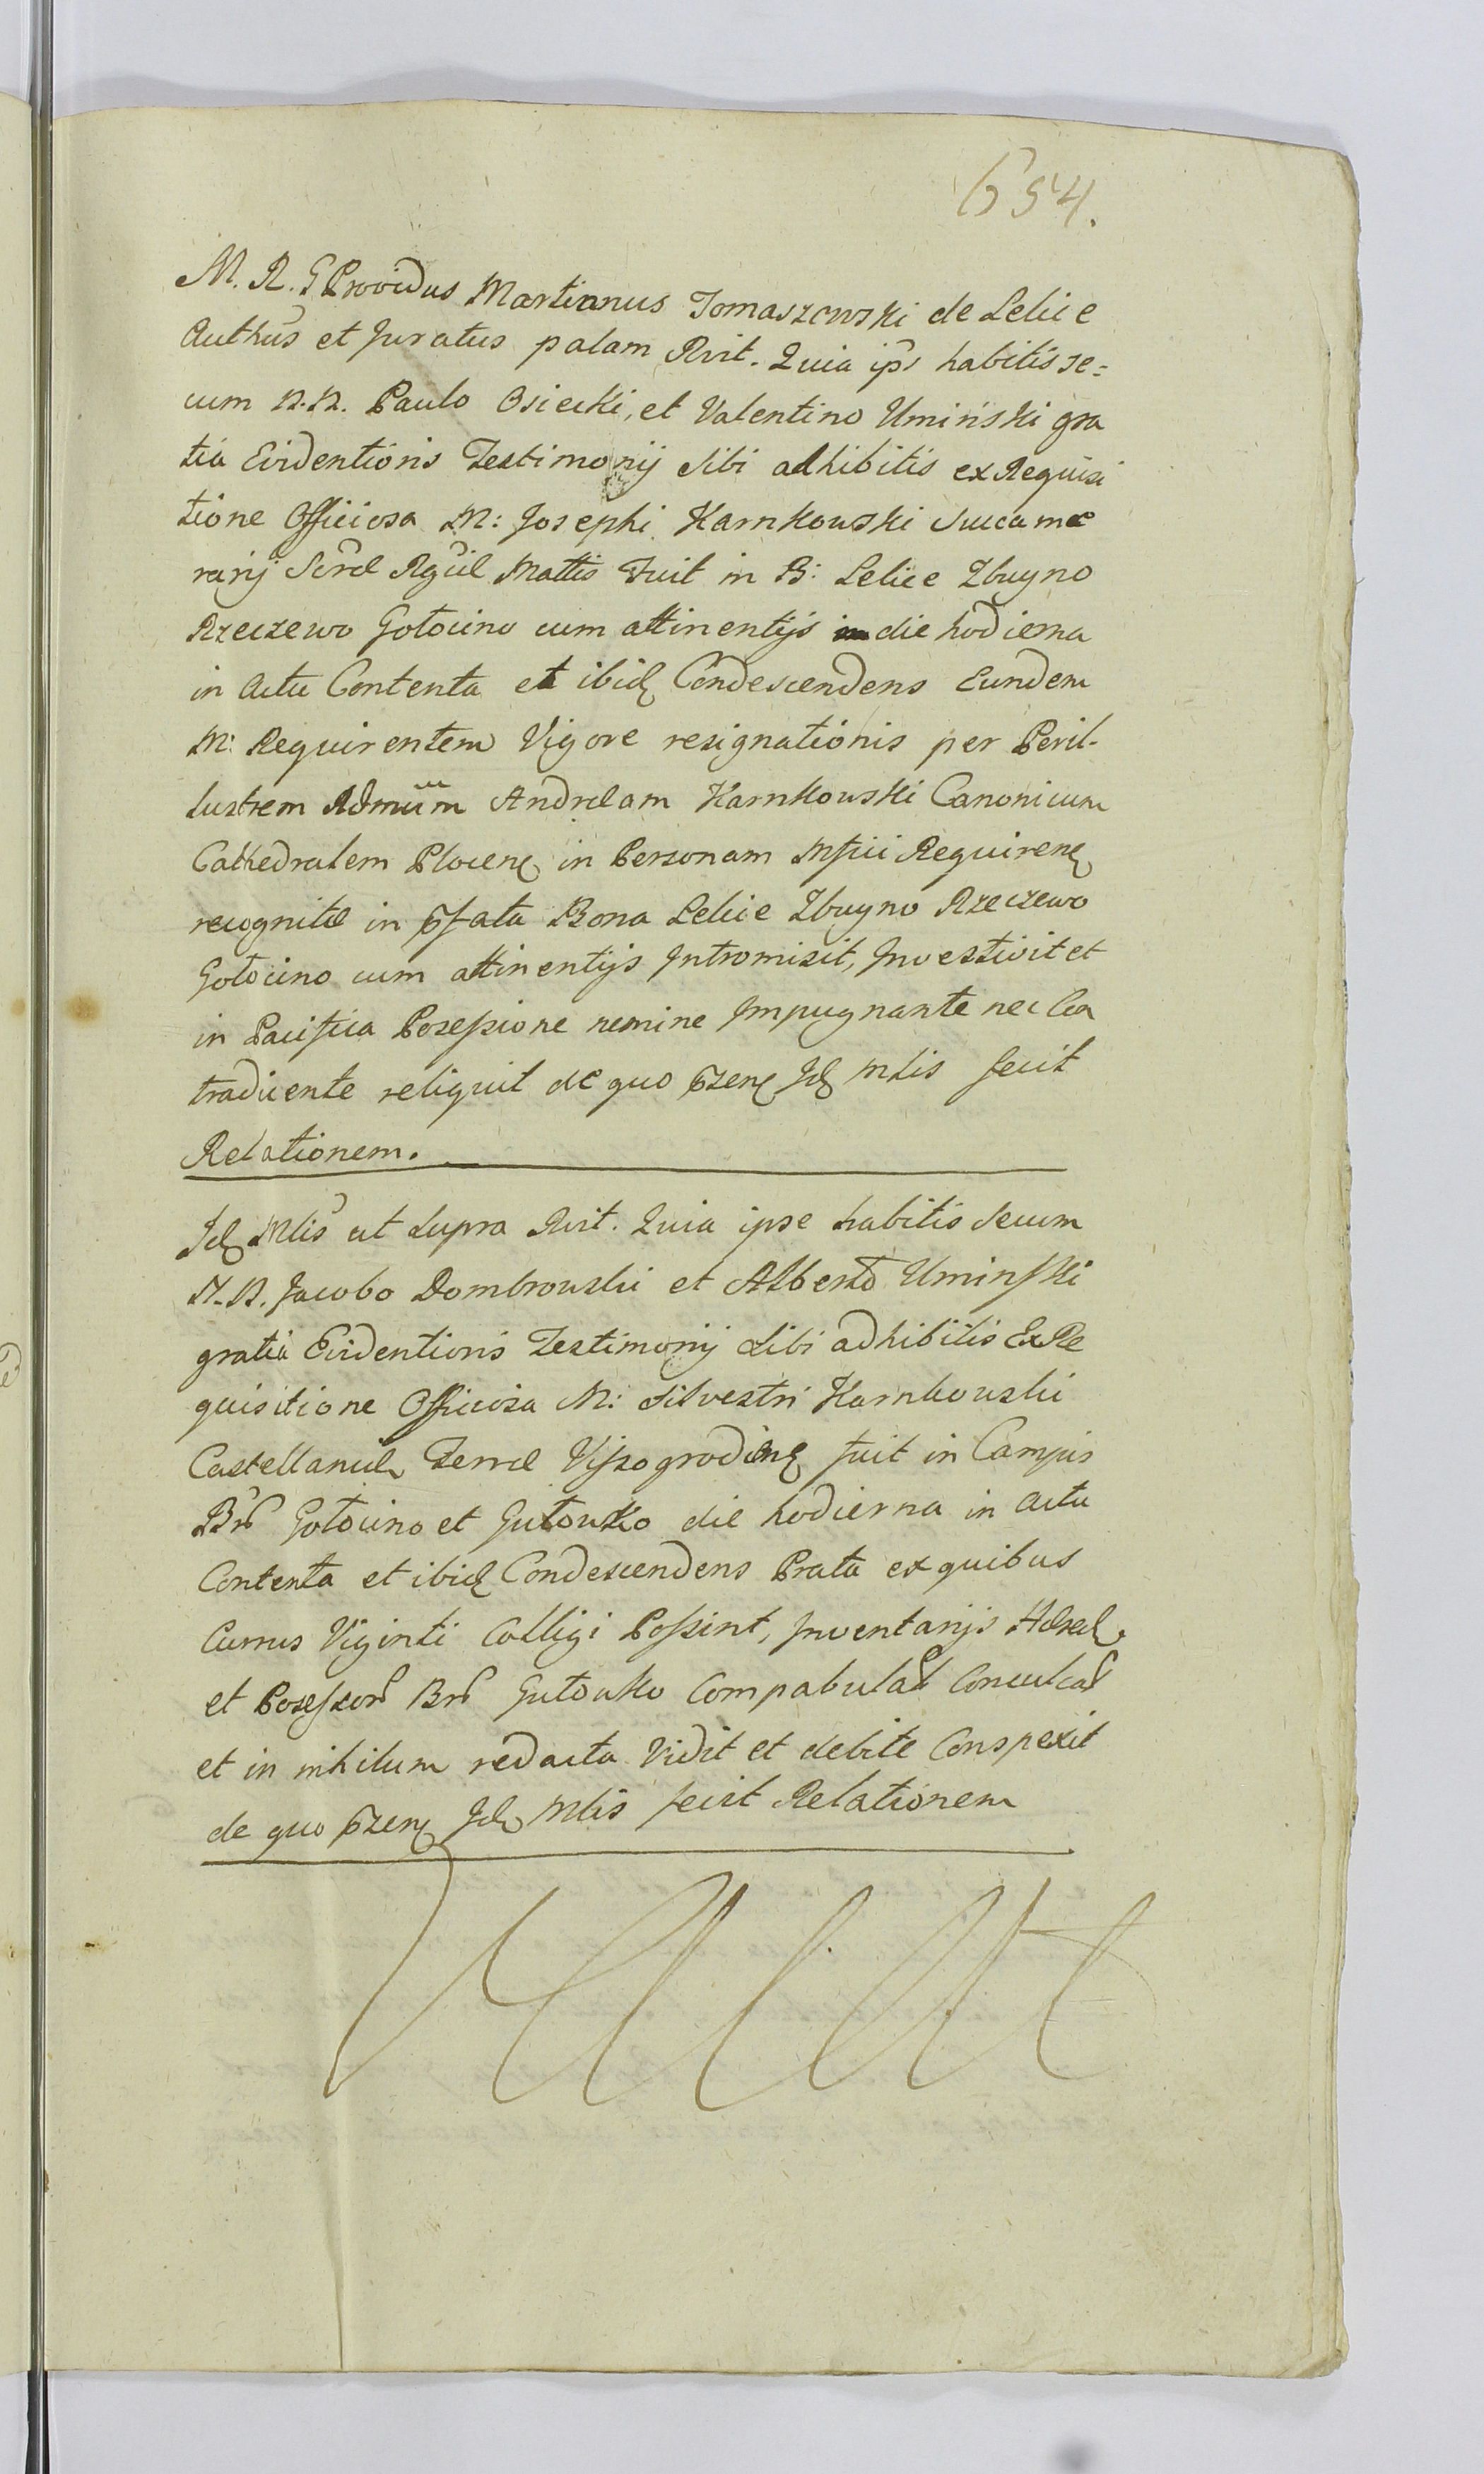 654.
M. R. G Providus Martianus Tomaszewski de Lelice
Authus et Juratus palam Rvit. Quia ips habitis se=
cum N.N. Paulo Osiecki, et Valentino Uminski gra
tia Evidentioris Testimonij sibi adhibitis ex Requisi
tione Officiosa M: Josephi Karnkowski Succame
rarij Sacrae Mattis Fuit in B: Lelice Zbuyno
Rzeczewo Gotocino cum attinentijs die hodierna
in Actu Contenta et ibid Condescendens Eundem
M: Requirentem Vigore resignationis per Peril-
lustrem Admum Andream Karnkowski Canonicum
Cathedralem Plocen in Personam Requiren
recognitae in pfata Bona Lelice Zbuyno Rzeczewo
Gotocino cum attinentijs Intromisit, Investivit et
in Pacifica Posessione nemine Impugnante nec Con
tradicente reliquit de quo pzen Jd Mlis fecit
Relationem.
Jd Mlis ut supra Rvit. Quia ipse habitis secum
N.N. Jacobo Dombrowski et Alberto Uminski
gratia Evidentioris Testimonij sibi adhibitis Ex Re
quisitione Officiosa M: Silvestri Karnkowski
Terrae Vissogrodien fuit in Campis
Bnr Gotocino et Gutowko die hodierna in Actu
Contenta et ibid Condescendens Prata ex quibus
Currus Viginti Colligi Possint, Inventarijs
et Posessor Bnr Gutowko Compabulat Conculcat
et in nihilum redacta Vidit et debite Conspexit
de quo pzen Jd Mlis fecit Relationem